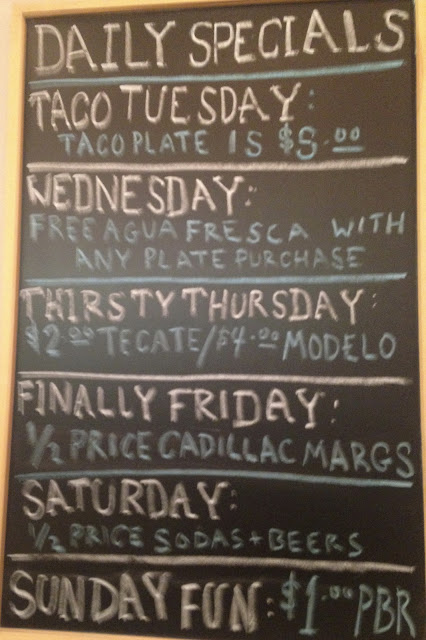 DAILY SPECIALS
TACO TUESDAY:
TACO PLATE IS $5.00
WEDNESDAY:
FREE AGUA FRESCA WITH
ANY PLATE PURCHASE
THIRSTY THURSDAY:
$2.00 TECATE/$4.00 MODELO
FINALLY FRIDAY:
1/2 PRICE CADILLAC MARGS
SATURDAY:
1/2 PRICE SODAS+BEERS
SUNDAY FUN: $1.00 PBR